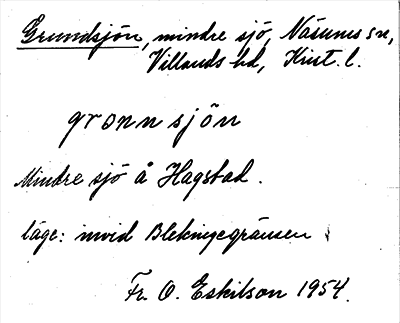 Grundsjön, mindre sjö, Näsums sn,
Villands hd, Krist. l.
gronnsjön
Mindre sjö å Hagstad.
läge: invid Blekingegränsen
Fr. O. Eskilson 1954.